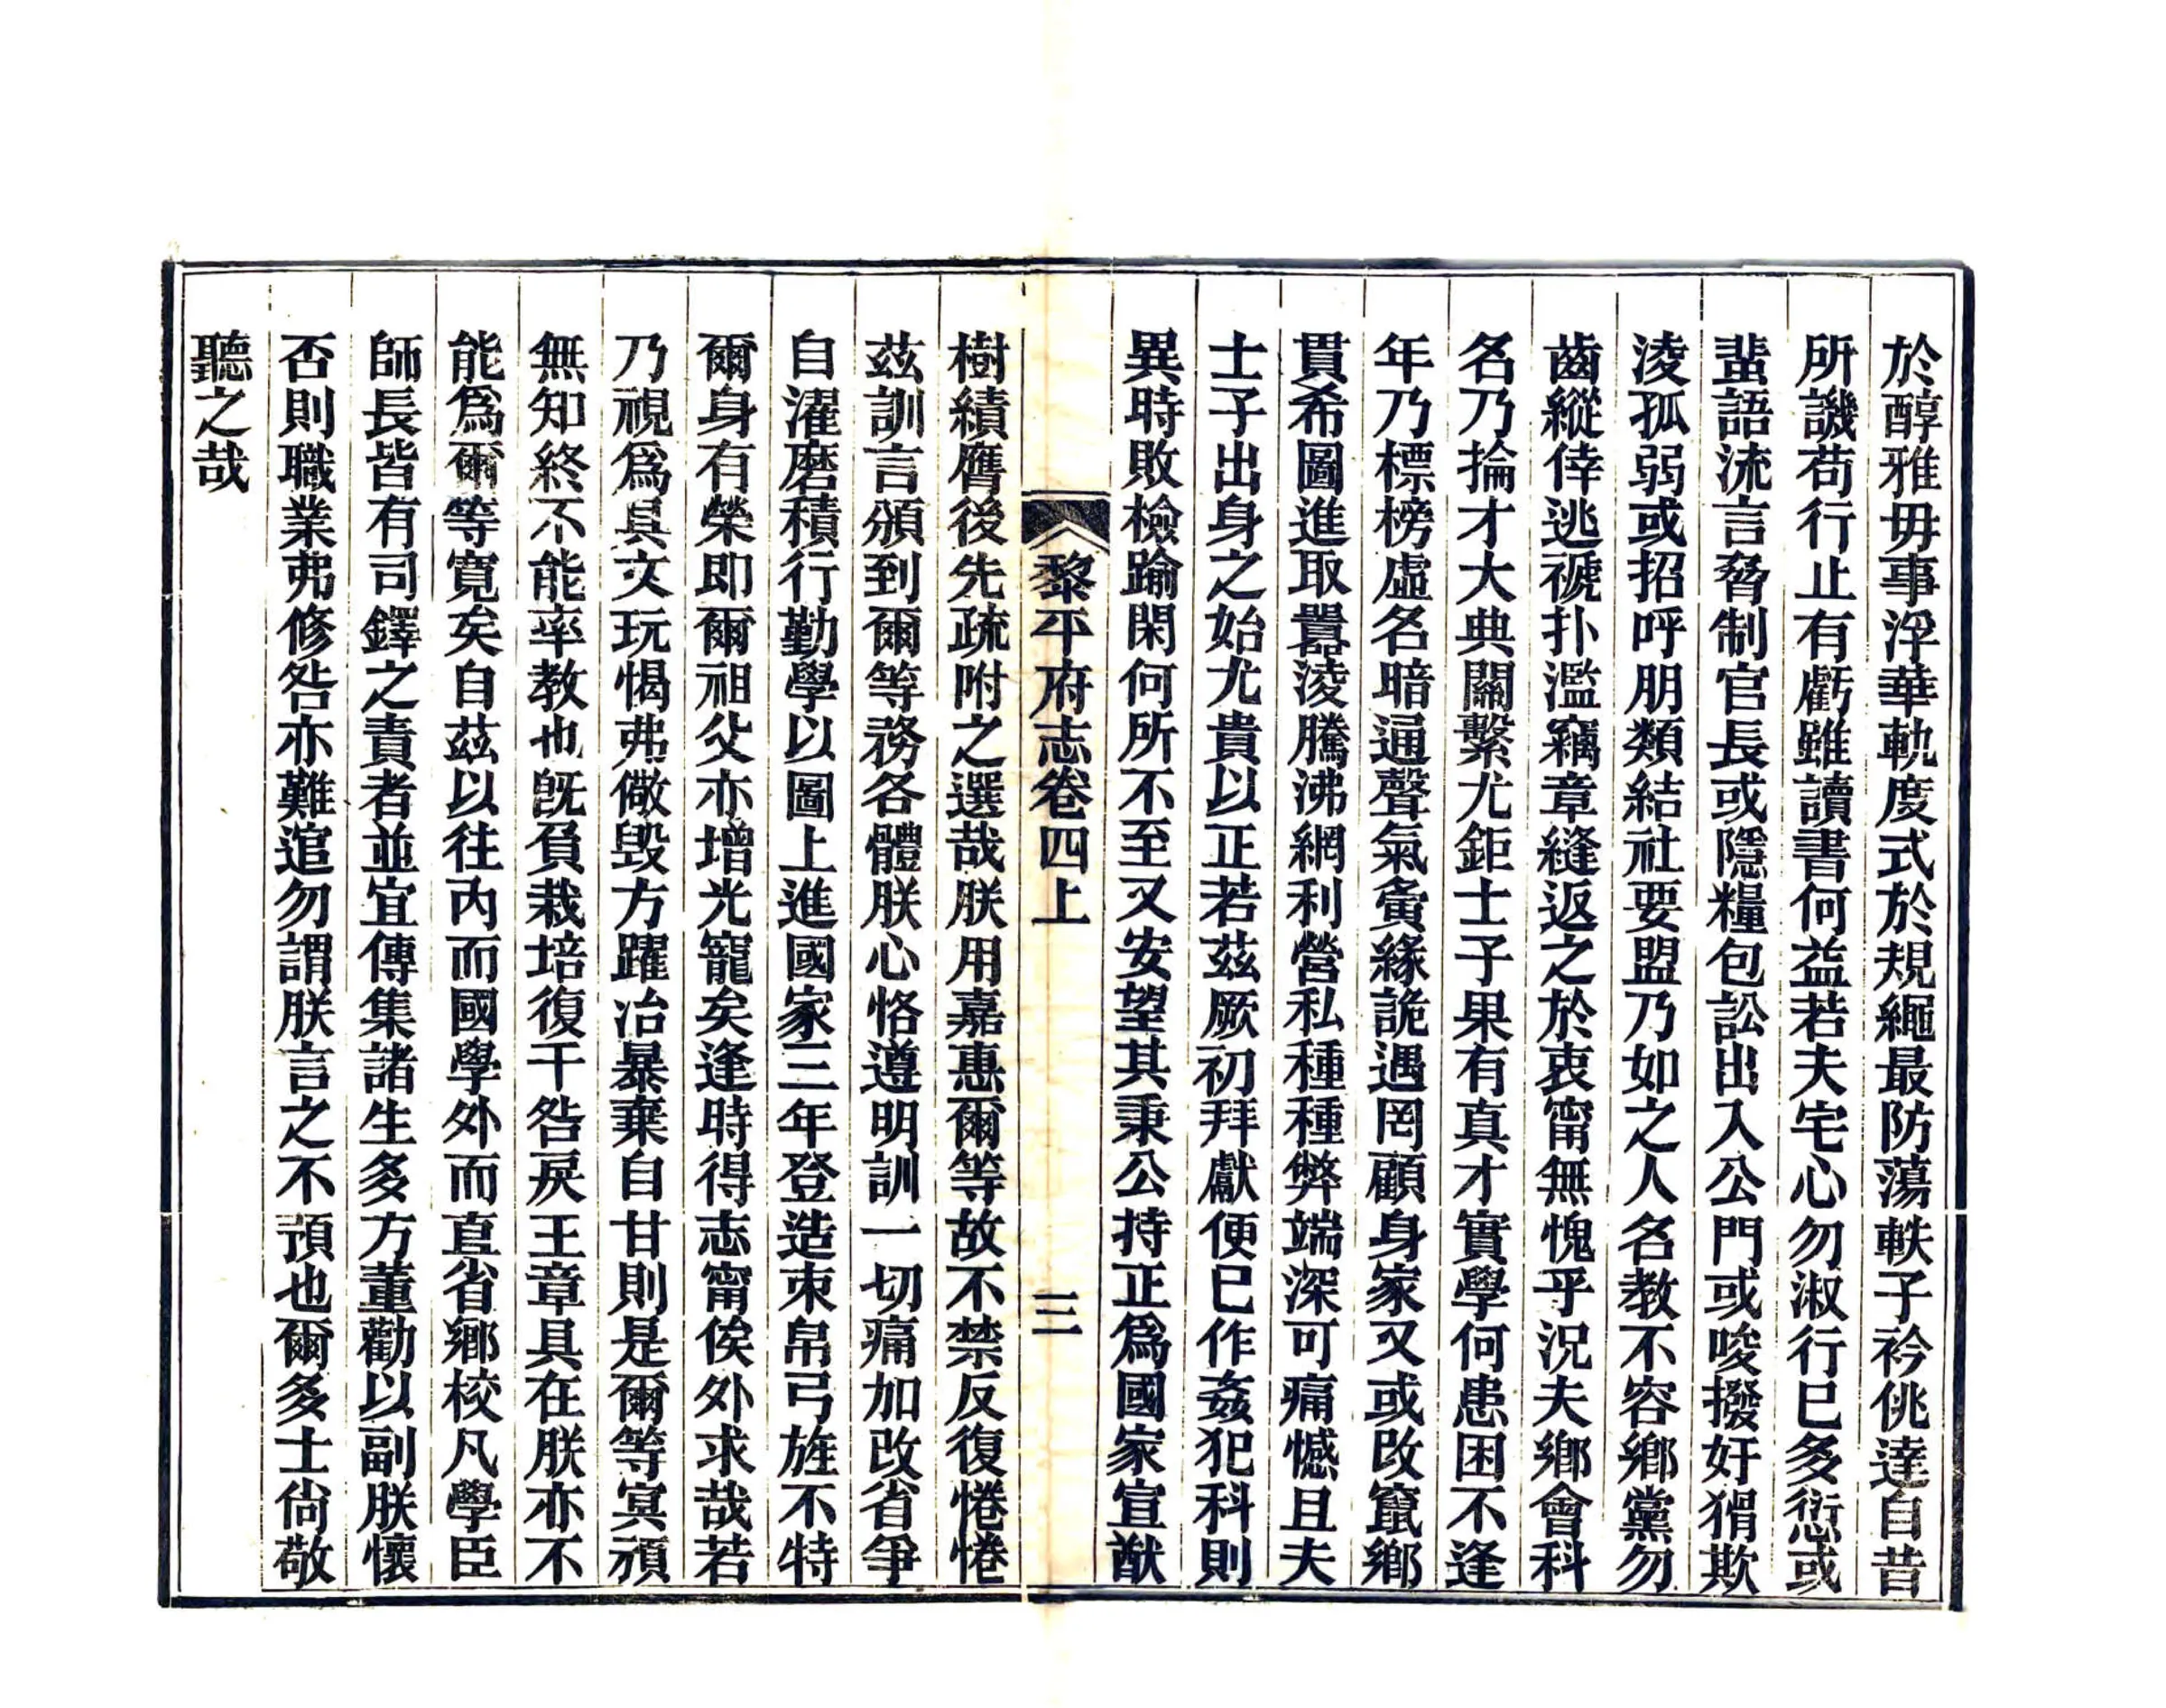 於醇雅毋事浮華軌度式於規繩最防蕩軼子衿佻達自昔
所譏苟行止有虧雖讀書何益若夫宅心勿淑行已多愆或
蜚語流言脅制官長或隱糧包訟出入公門或唆撥奸猾欺
淩孤弱或招呼朋類結社要盟乃如之人名教不容鄉黨勿
齒縱倖逃褫扑濫竊章縫返之於衷甯無愧乎況夫鄉會科
名乃掄才大典關繫尤鉅士子果有真才實學何患困不逢
年乃標榜虛名暗通聲氣夤緣詭遇罔顧身家又或改竄鄉
貫希圖進取囂淩騰沸網利營私種種弊端深可痛憾且夫
士子出身之始尤貴以正若茲厥初拜獻便已作姦犯科則
異時敗檢踰閑何所不至又安望其秉公持正爲國家宣猷
黎平府志卷四上 三
樹績膺後先疏附之選哉朕用嘉惠爾等故不禁反復惓惓
茲訓言頒到爾等務各體朕心恪遵明訓一切痛加改省爭
自濯磨積行勤學以圖上進國家三年登造束帛弓旌不特
爾身有榮即爾祖父亦增光寵矣逢時得志甯俟外求哉若
乃視爲具文玩愒弗儆毀方躍冶暴棄自甘則是爾等冥頑
無知終不能率教也旣負栽培復干咎戾王章具在朕亦不
能爲爾等寬矣自茲以往內而國學外而直省鄉校凡學臣
師長皆有司鐸之責者並宜傳集諸生多方董勸以副朕懷
否則職業弗修咎亦難逭勿謂朕言之不預也爾多士尙敬
聽之哉